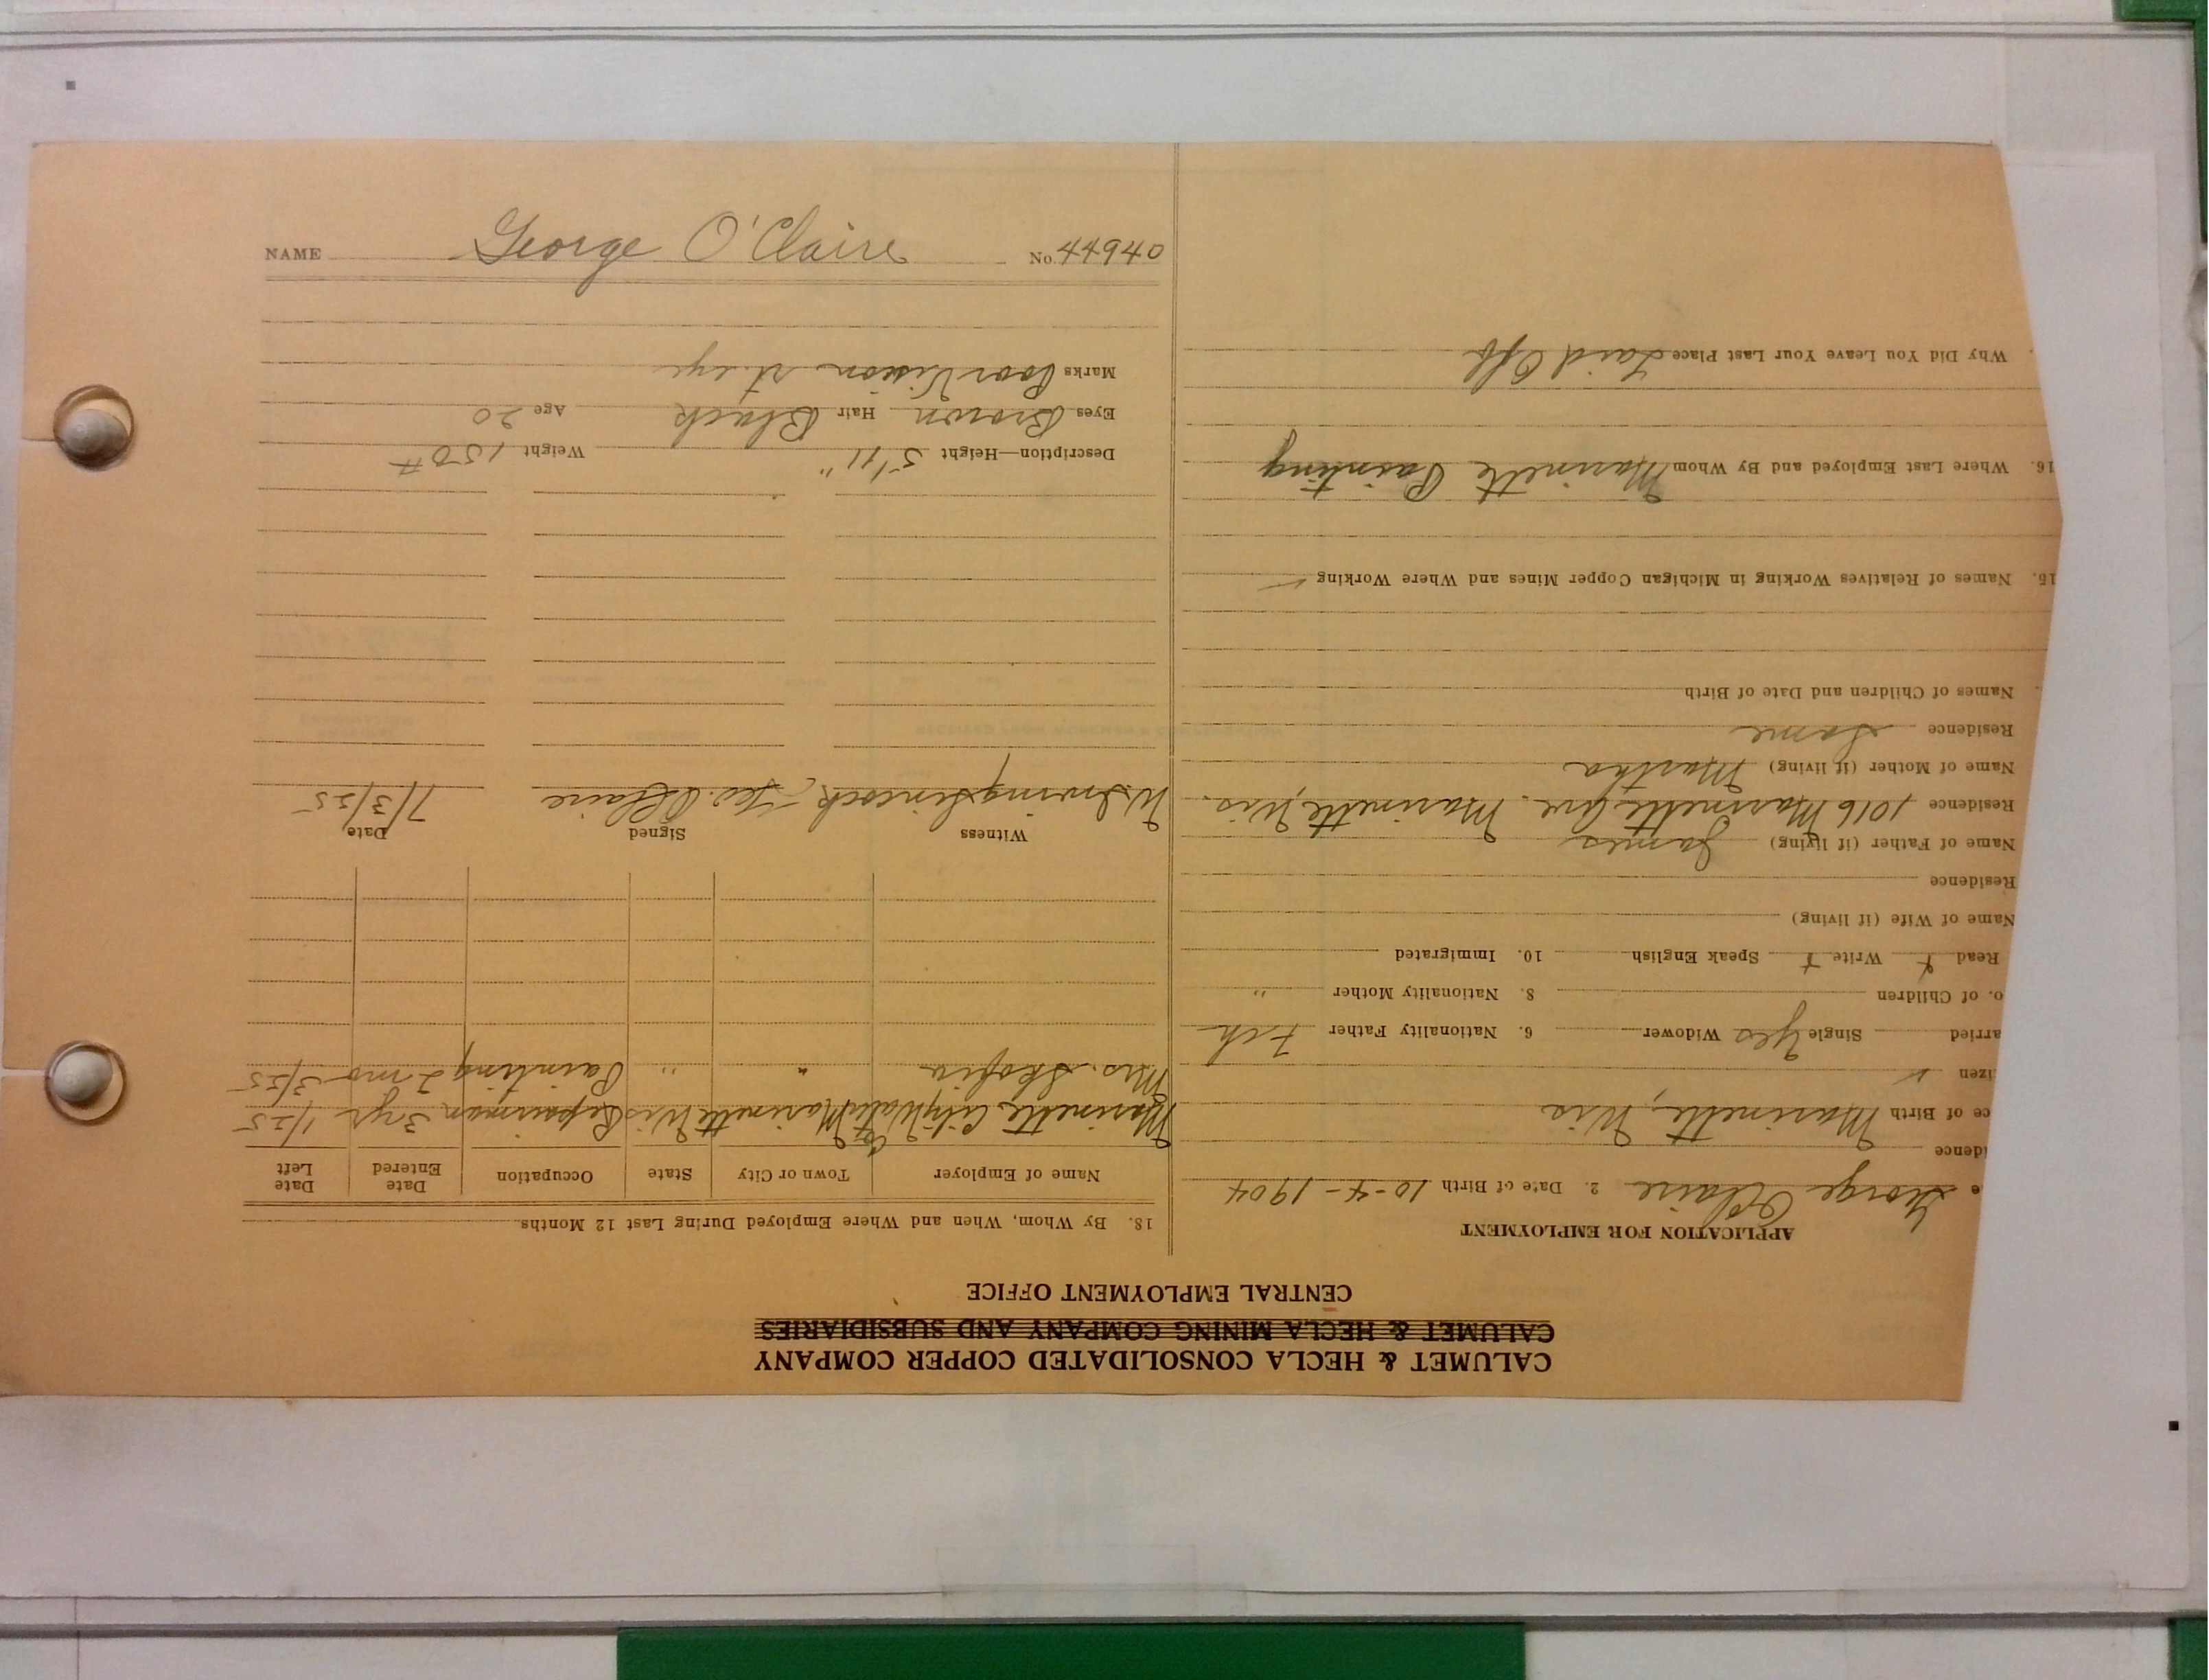 NAME George O'Claire No. 44940
CALUMET & HECLA CONSOLIDATED COPPER COMPANY
CALUMET & HECLA MINING COMPANY AND SUBSIDIARIES
CENTRAL EMPLOYMENT OFFICE
APPLICATION FOR EMPLOYMENT
e George O'Claire 2. Date of Birth 10-4-1904
idence
ce of Birth Marinette, Wis
izen ✓
arried Single Yes Widower 6. Nationality Father Fch
o. of Children 8. Nationality Mother "
Read Write Speak English 10. Immigrated
Name of Wife (if living)
Residence
Name of Father (if living) James
Residence 1016 Marinette Ave. Marinette, Wis.
Name of Mother (if living) Martha
Residence Same
Names of Children and Date of Birth
15. Names of Relatives Working in Michigan Copper Mines and Where Working ✓
16. Where Last Employed and By Whom Marinette Painting
. Why Did You Leave Your Last Place Laid Off
18. By Whom, When and Where Employed During Last 12 Months
Name of Employer Town or City State Occupation Date Entered Date Left
Marinette City Water Co. Marinette Wis Repairman 3 yr 1/25
Mrs. " " Painting 2 mo 3/25
Witness Signed Date
W. Irving Sincock Geo. O'Claire 7/3/25
Description—Height 5'11" Weight 150#
Eyes Brown Hair Black Age 20
Marks Poor Vision rt. eye